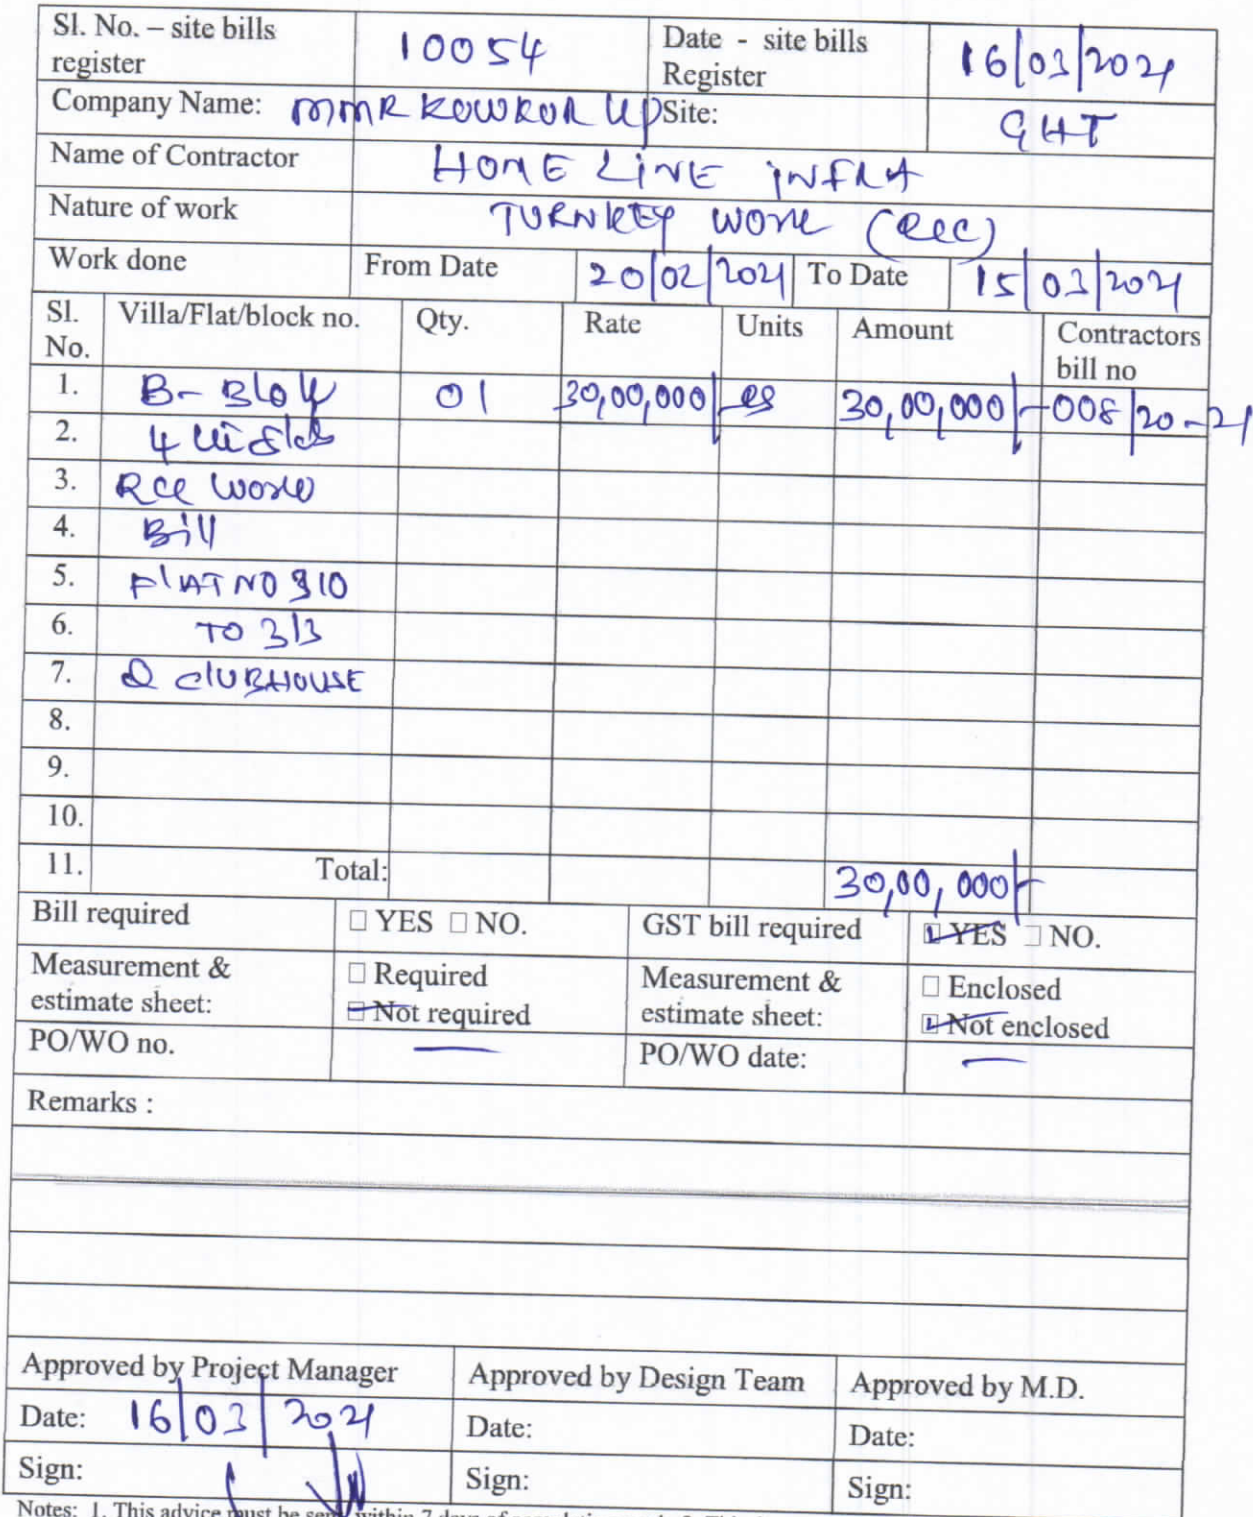 Sl. No. – site bills register 10054 Date - site bills Register 16/03/2021
Company Name: MMR KOWKOOR LLP Site: GHT
Name of Contractor HOME LINE INFRA
Nature of work TURNKEY WORK (RCC)
Work done From Date 20/02/2021 To Date 15/03/2021
Sl. No. Villa/Flat/block no. Qty. Rate Units Amount Contractors bill no
1. B-Block 01 30,00,000/- 30,00,000/- 008/20-21
2. 4
3. RCC Work
4. Bill
5. FLAT NO 310
6. TO 313
7. & CLUBHOUSE
8.
9.
10.
11. Total: 30,00,000/-
Bill required ☐ YES ☐ NO. GST bill required ☑ YES ☐ NO.
Measurement & estimate sheet: ☐ Required ☑ Not required Measurement & estimate sheet: ☐ Enclosed ☑ Not enclosed
PO/WO no. — PO/WO date: —
Remarks :
Approved by Project Manager Approved by Design Team Approved by M.D.
Date: 16/03/2021 Date: Date:
Sign: Sign: Sign:
Notes: 1. This advice must be sent within 7 days of